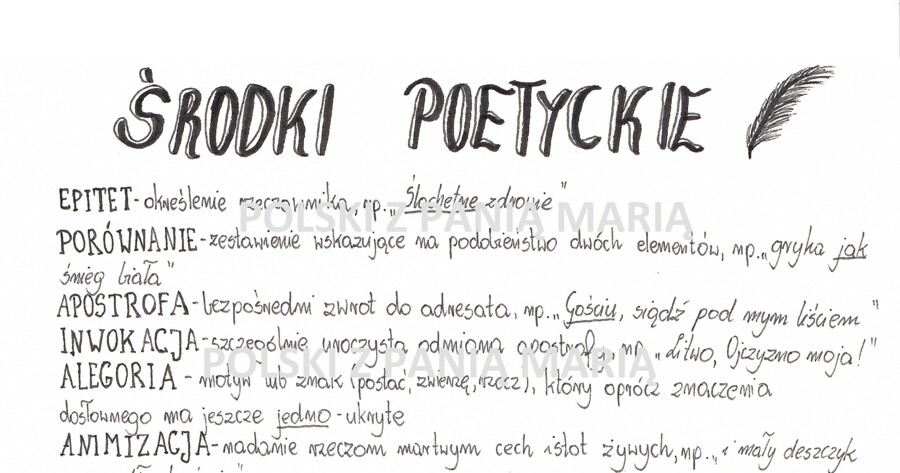 ŚRODKI POETYCKIE
EPITET - określenie rzeczownika, np. „Ślachetne zdrowie"
PORÓWNANIE - zestawienie wskazujące na podobieństwo dwóch elementów, np. „gryka jak
śnieg biała"
APOSTROFA - bezpośredni zwrot do adresata, np. „Gościu, siądź pod mym liściem"
INWOKACJA - szczególnie uroczysta odmiana apostrofy, np. „Litwo, Ojczyzno moja!"
ALEGORIA - motyw lub znak (postać, zwierzę, rzecz), który oprócz znaczenia
dosłownego ma jeszcze jedno - ukryte
ANIMIZACJA - nadanie rzeczom martwym cech istot żywych, np. „i mały deszczyk
POLSKI Z PANIĄ MARIĄ
POLSKI Z PANIĄ MARIĄ